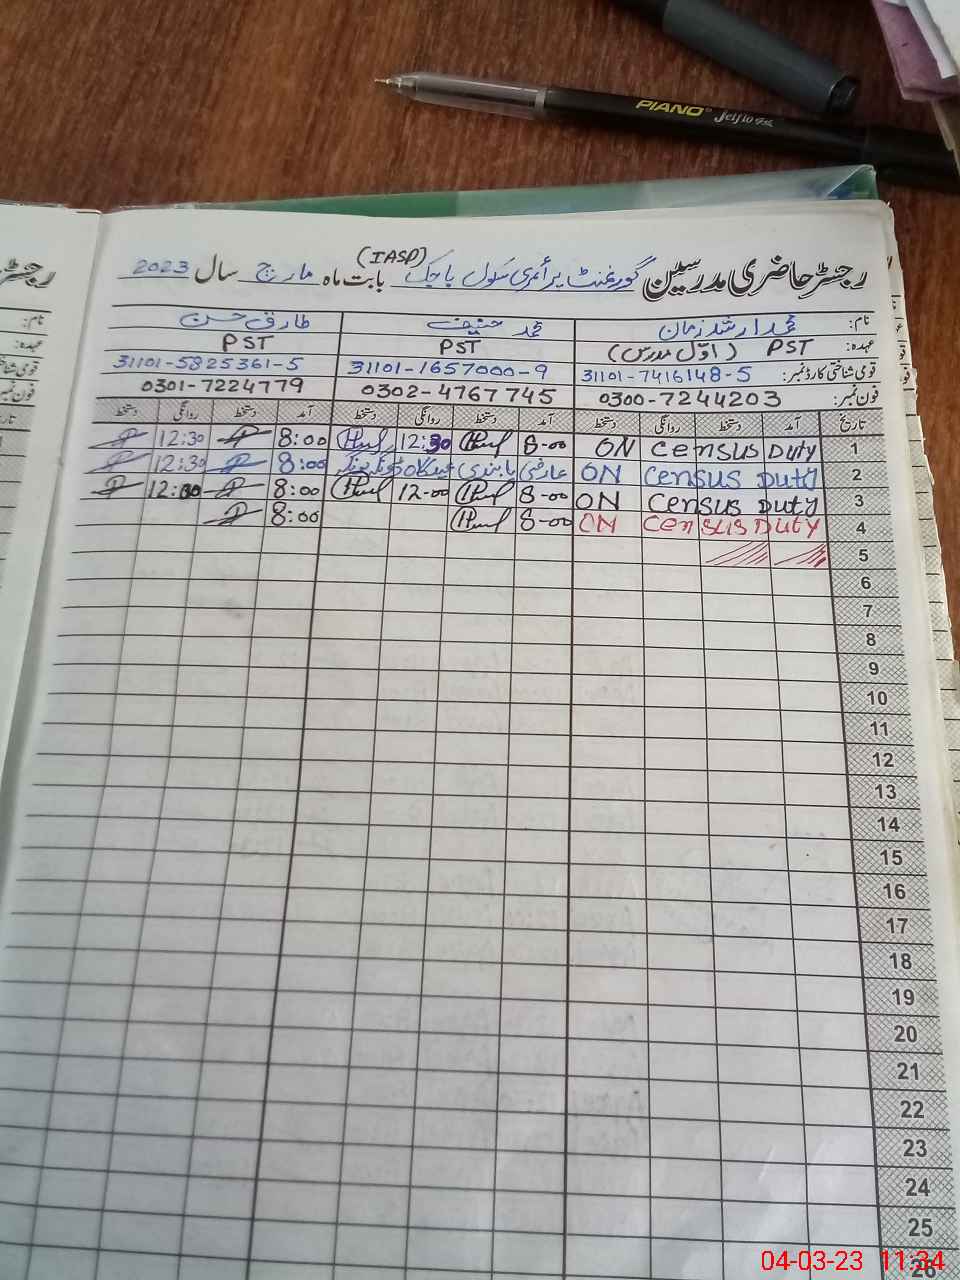 PIANO Jelflo
(IASP)
رجسٹر حاضری مدرسین گورنمنٹ پرائمری سکول بابت ماہ مارچ سال 2023
نام: محمد ارشد زمان محمد حنیف طارق حسن
عہدہ: PST (اول مدرس) PST PST
قومی شناختی کارڈ نمبر: 31101-7416148-5 31101-1657000-9 31101-5825361-5
فون نمبر: 0300-7244203 0302-4767745 0301-7224779
تاریخ آمد دستخط روانگی دستخط آمد دستخط روانگی دستخط آمد دستخط روانگی دستخط
1 ON Census Duty 8-00 12:30 8:00 12:30
2 ON Census Duty عارضی پابندی 8:00 12:30
3 ON Census Duty 8-00 12-00 8:00 12:00
4 ON Census Duty 8-00 8:00
5
6
7
8
9
10
11
12
13
14
15
16
17
18
19
20
21
22
23
24
25
26
04-03-23 11:34